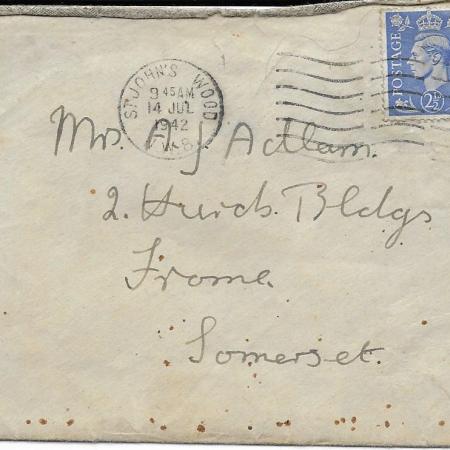 ST JOHN'S WOOD
9 45 AM
14 JUL
1942
N.W.8.
POSTAGE
2½D
Mrs. A J Adlam.
2. Bldgs
Frome.
Somerset.